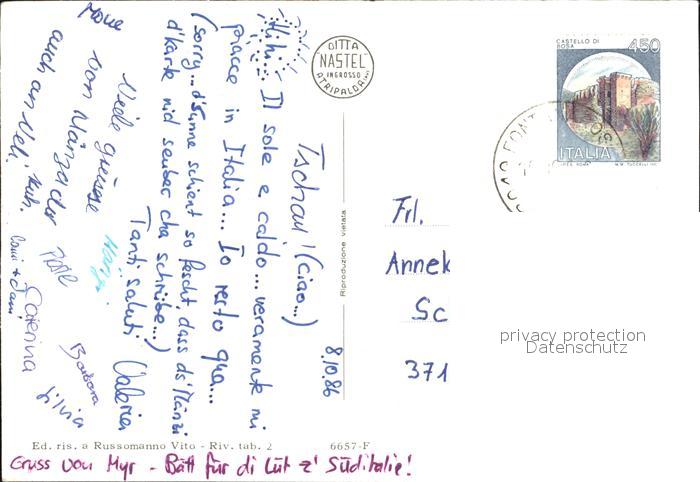 Tschau! (ciao...)
8.10.86
Hihi... Il sole e caldo... veramente mi
piacce in Italia... Io resto qua...
(sorry... d'Sunne schient so fescht, dass ds'Mänzi
d'karte nid seuber cha schribe...)
Tanti saluti Valeria
Viele grüesse
von Mänzader
auch an Ueli
Caterina
Barbara
Silvia
DITTA
NASTEL
INGROSSO
ATRIPALDA
CASTELLO DI
ROSA
450
ITALIA
Riproduzione vietata
Frl.
Annek
Sc
371
privacy protection
Datenschutz
Ed. ris. a Russomanno Vito - Riv. tab. 2
6657-F
Gruss von Myr - Bätt für di Lüt z' Süditalie!